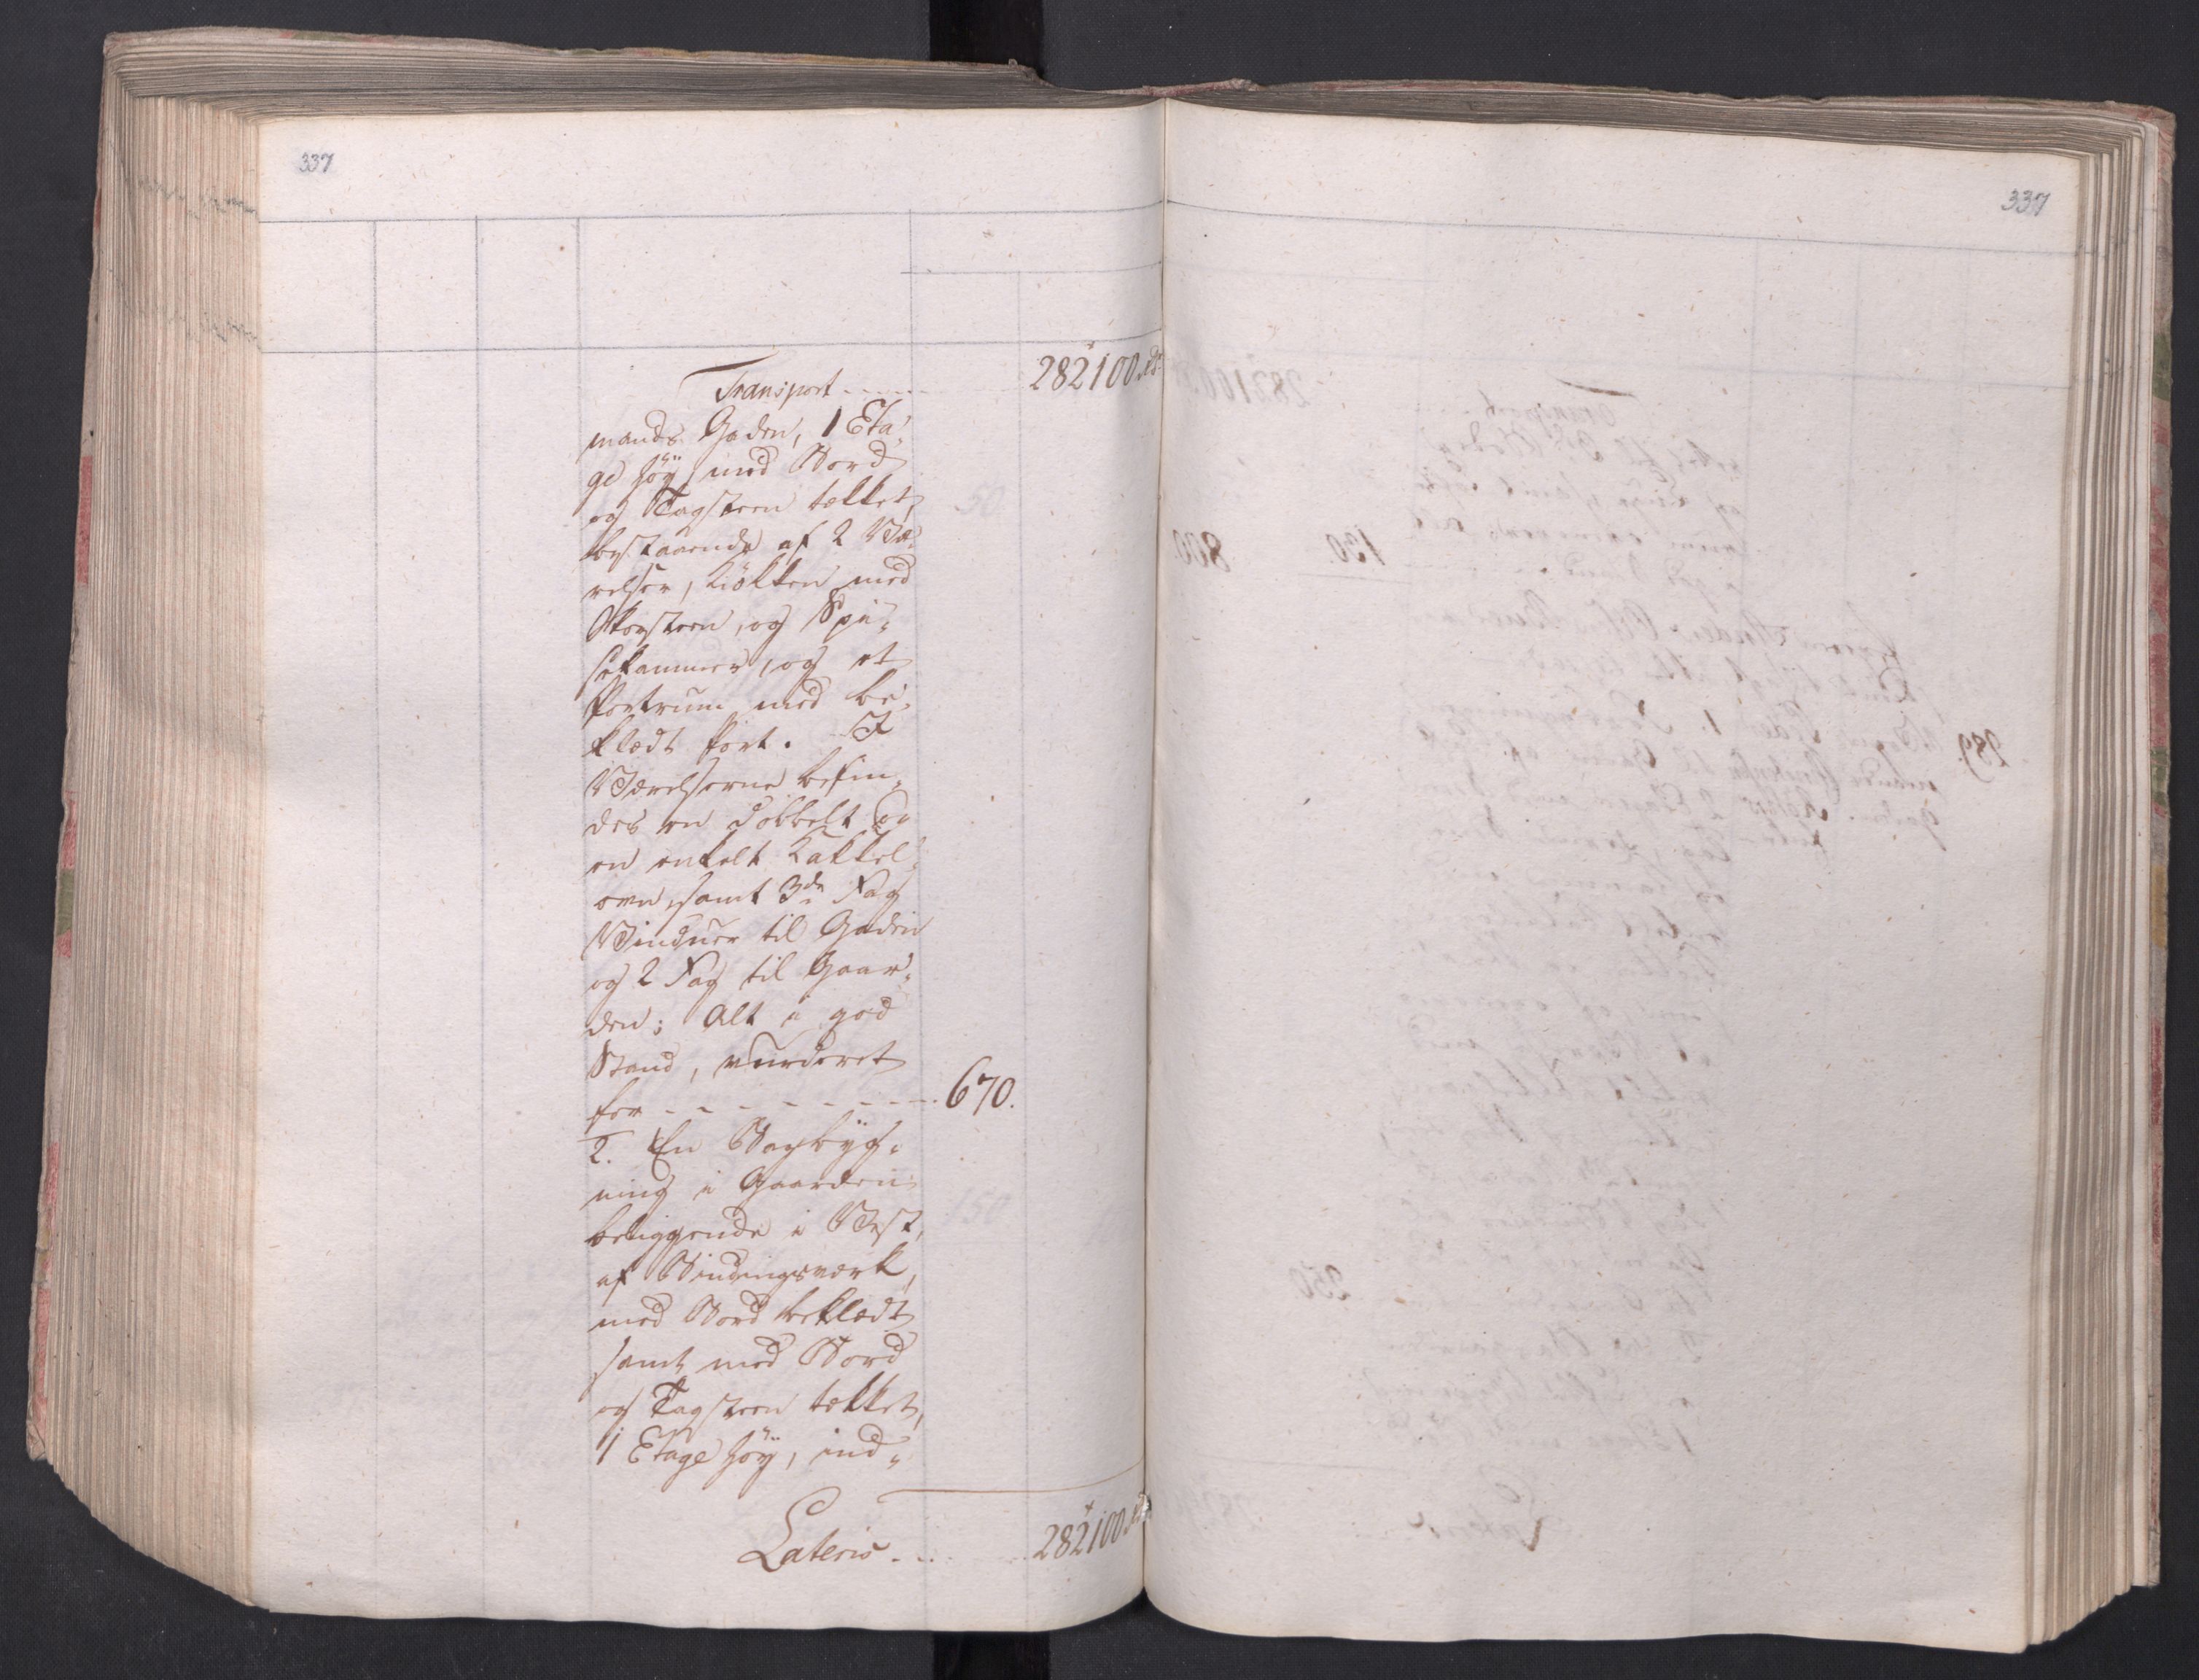 337
Transport - - - - - 282100 rdr
mands Gaden, 1 Eta,,
ge høÿ, med Bord
og Tagsteen tækket,
bestaaende af 2 Væ,,
relser, Kiøkken med
Skorsteen, og Spi,,
sekammer, og et
Portrum med be,,
klædt Port. I
Værelserne befin,,
des en dobbelt og
en enkelt Kakkel,,
ovn, samt 3de Fag
Vinduer til Gaden
og 2 Fag til Gaar,,
den; Alt i god
Stand, vurderet
for - - - - - - - - 670.
2. En Bagbÿg,,
ning i Gaarden
beliggende i Vest,
af Bindingsværk,
med Bord beklædt
samt med Bord
og Tagsteen tækket,
1 Etage høÿ, ind,,
Lateris - - - 282100 rdr
337